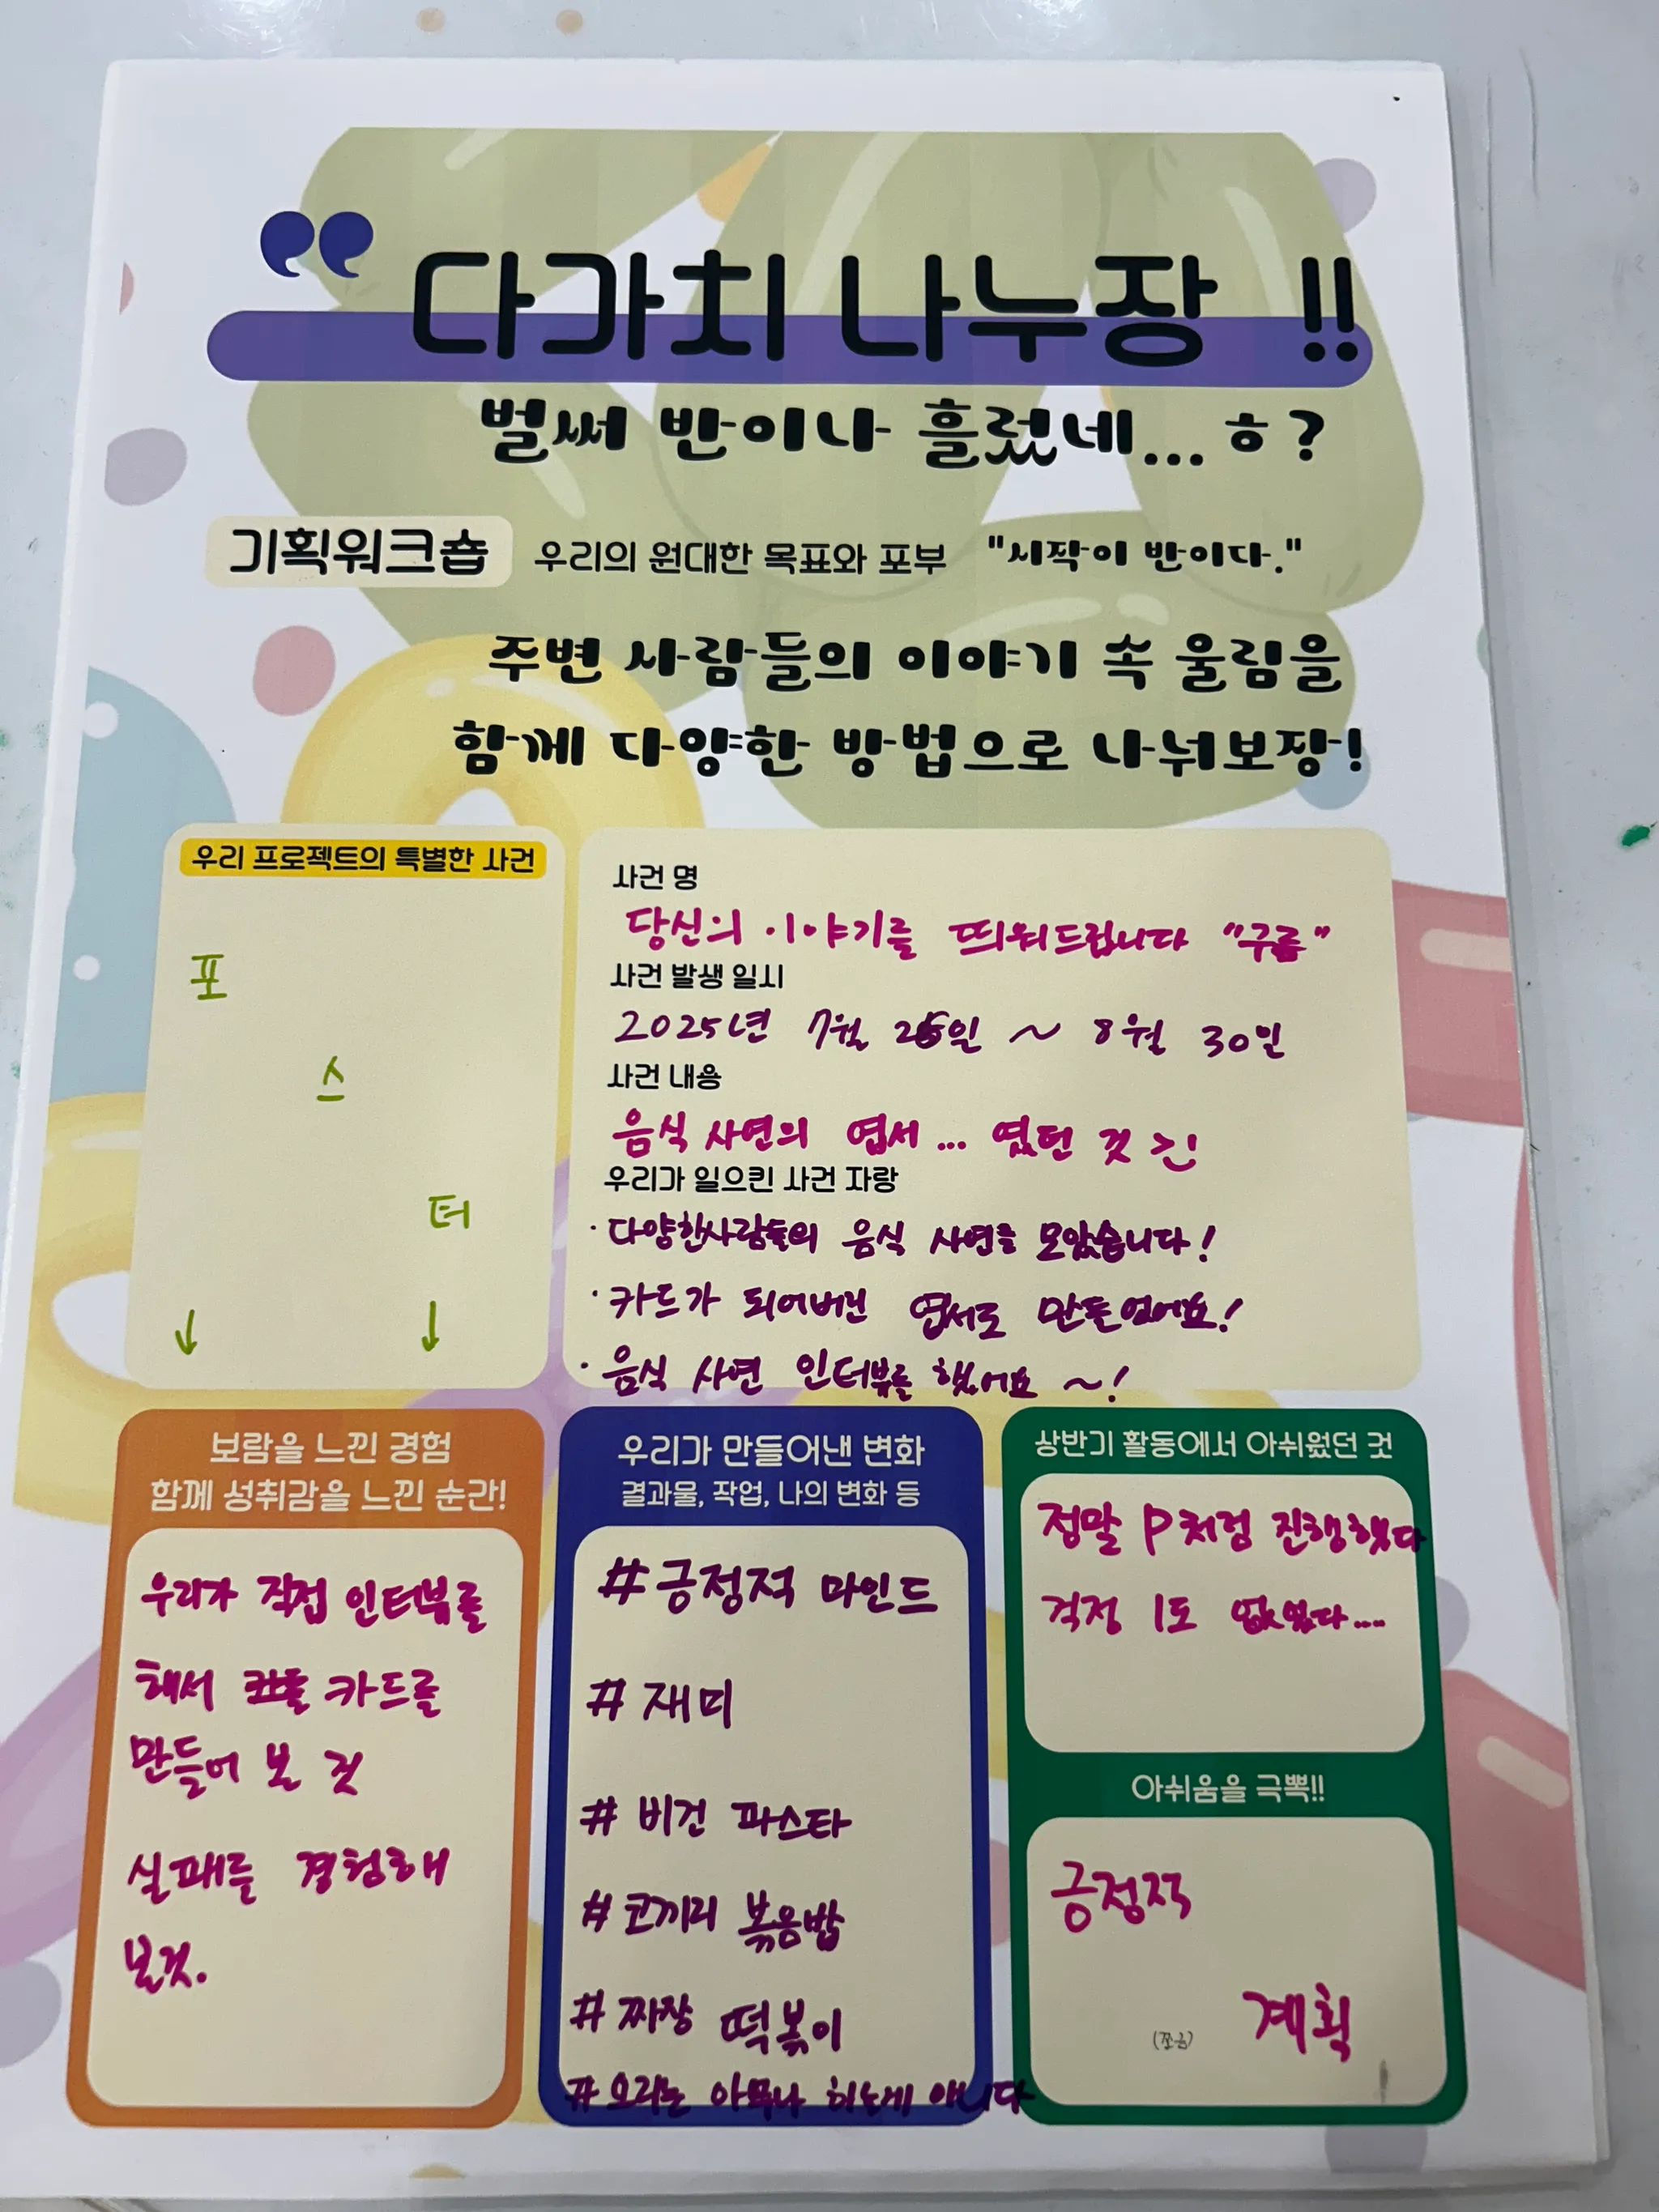 다가치 나누장 !!
벌써 반이나 흘렀네...ㅎ?
기획워크숍 우리의 원대한 목표와 포부 "시작이 반이다."
주변 사람들의 이야기 속 울림을
함께 다양한 방법으로 나눠보장!
우리 프로젝트의 특별한 사건
포
스
터
↓ ↓
사건 명
당신의 이야기를 띄워드립니다 "구름"
사건 발생 일시
2025년 7월 26일 ~ 8월 30일
사건 내용
음식 사연의 엽서... 였던 것
우리가 일으킨 사건 자랑
· 다양한사람들의 음식 사연을 모았습니다!
· 카드가 되어버린 엽서로 만들었어요!
· 음식 사연 인터뷰를 했어요 ~!
보람을 느낀 경험
함께 성취감을 느낀 순간!
우리가 직접 인터뷰를
해서 카드를
만들어 본 것
실패를 경험해
본것.
우리가 만들어낸 변화
결과물, 작업, 나의 변화 등
# 긍정적 마인드
# 재미
# 비건 파스타
# 코끼리 볶음밥
# 짜장 떡볶이
# 요리는 아무나 하는게 아니다
상반기 활동에서 아쉬웠던 것
정말 P처럼 진행했다
걱정 1도 없었다....
아쉬움을 극뽁!!
긍정적
(쪼금) 계획